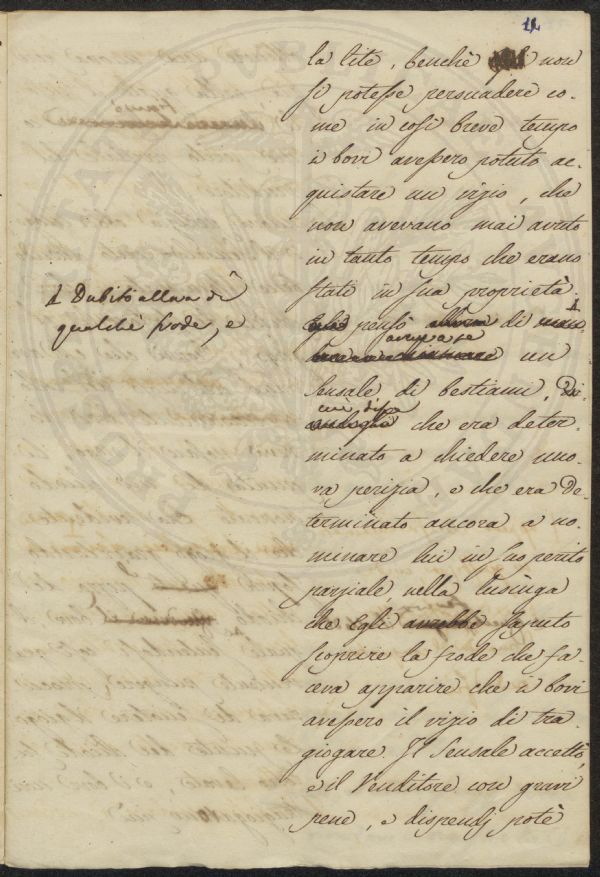 11
la lite, benchè non
si potesse persuadere co-
me in così breve tempo
i bovi avessero potuto ac-
quistare un vizio, che
non avevano mai avuto
in tanto tempo che erano
stati in sua proprietà.
1 Dubitò allora di
qualche frode, e
pensò allora di
avere a se
un
sensale di bestiami,
cui disse
che era deter-
minato a chiedere nuo-
va perizia, e che era de-
terminato ancora a no-
minare lui in suo perito
parziale, nella lusinga
che Egli avrebbe saputo
scoprire la frode che fa-
ceva apparire che i bovi
avessero il vizio di tra-
giogare. Il Sensale accettò,
e il Venditore con gravi
pene, e dispendj potè